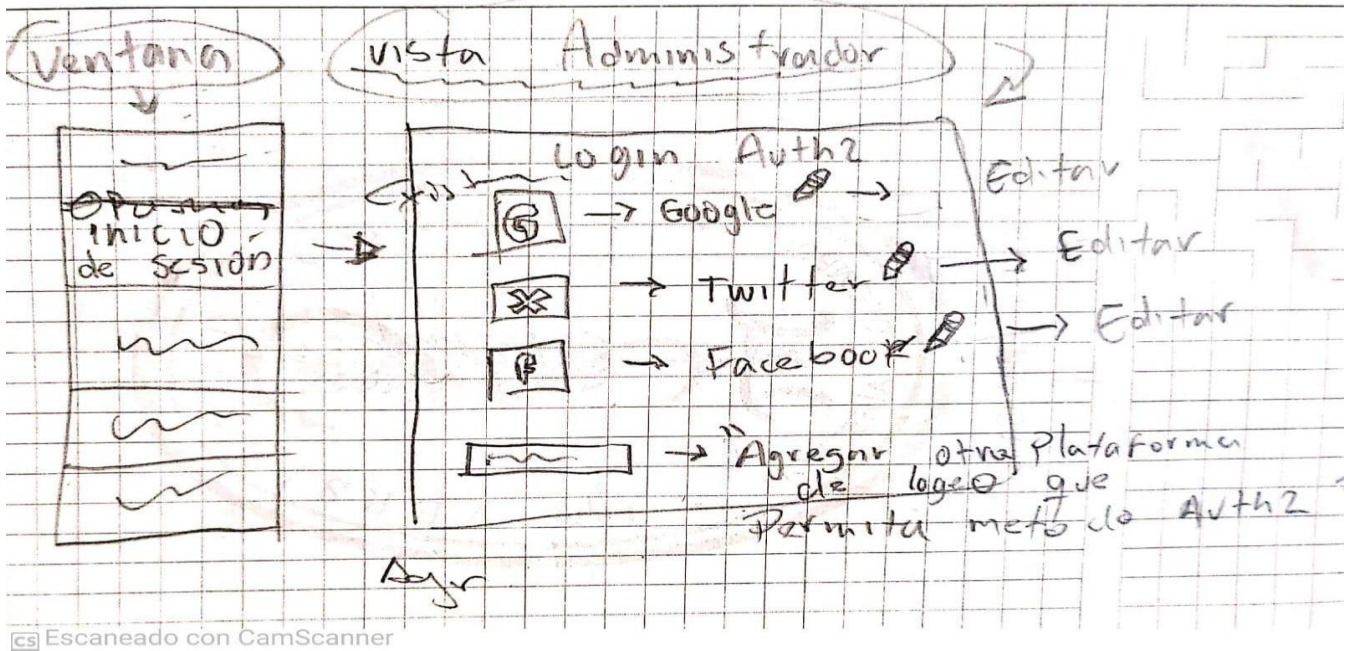 Ventana
vista Administrador
Login Auth2
inicio
de sesión
G → Google → Editar
X → Twitter → Editar
F → Facebook → Editar
→ "Agregar otra Plataforma
de logeo que
Permita metodo Auth2
Agr
CS Escaneado con CamScanner